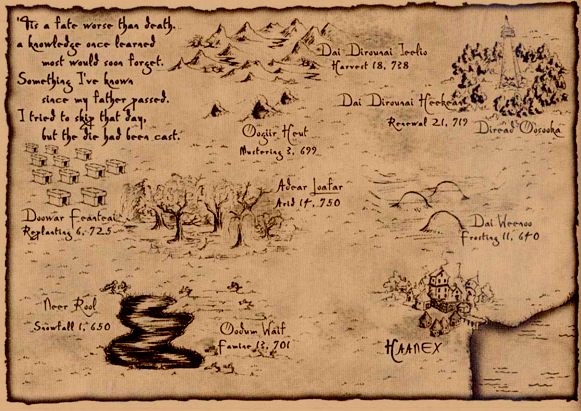 'Tis a fate worse than death.
a knowledge once learned
most would soon forget.
Something I've known
since my father passed.
I tried to skip that day,
but the die had been cast.
Dai Dirounai Ieelio
Harvest 18, 728
Dai Dirounai Heekean
Renewal 21, 719
Diread Oosooka
Oogiir Heut
Mustering 3, 699
Adear Loafar
Arid 14, 750
Doowar Feanteai
Replanting 6, 725
Dai Weenoo
Frosting 11, 640
Neer Rool
Snowfall 1, 650
Oodum Waif
Famine 13, 701
HAANEX